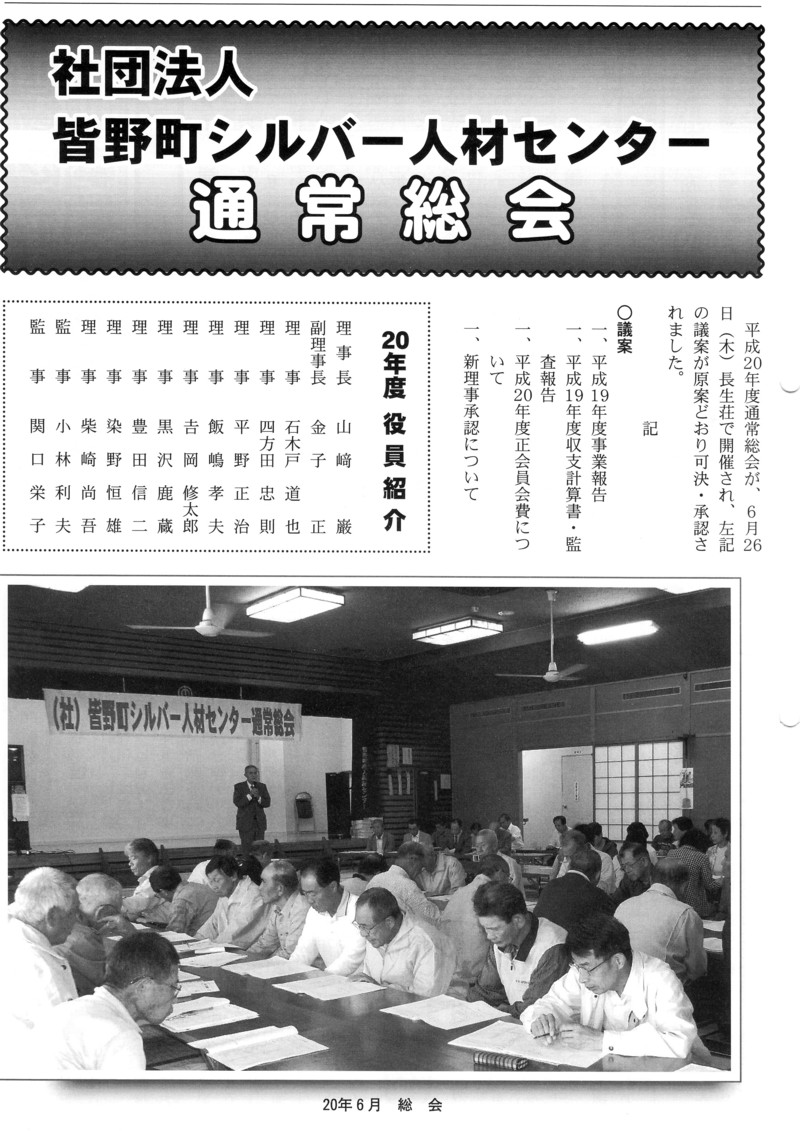 社団法人
皆野町シルバー人材センター
通常総会
平成20年度通常総会が、6月26
日（木）長生荘で開催され、左記
の議案が原案どおり可決・承認さ
れました。
記
〇議案
一、平成19年度事業報告
一、平成19年度収支計算書・監
査報告
一、平成20年度正会員会費につ
いて
一、新理事承認について
20年度 役員紹介
理事長 山﨑 巌
副理事長 金子 正
理事 石木戸道也
理事 四方田忠則
理事 平野正治
理事 飯嶋孝夫
理事 吉岡修太郎
理事 黒沢鹿蔵
理事 豊田信二
理事 染野恒雄
理事 柴崎尚吾
監事 小林利夫
監事 関口栄子
（社）皆野町シルバー人材センター通常総会
20年6月 総 会